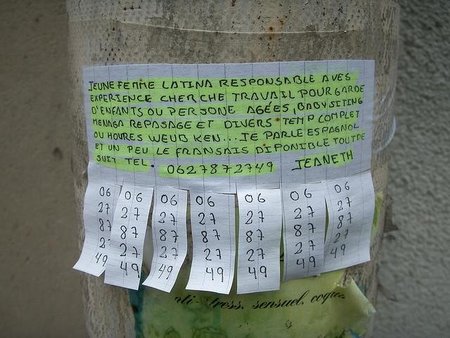 JEUNE FEMME LATINA RESPONSABLE AVES
EXPERIENCE CHERCHE TRAVAIL POUR GARDE
D'ENFANTS OU PERSONE AGÉES, BABY SITING
MENAGA REPASAGE ET DIVERS TEMP COMPLET
OU HOURES WEUB KEN... JE PARLE ESPAGNOL
ET UN PEU LE FRANSAIS DIPONIBLE TOUTDE
SUIT TEL. 0627872749 JEANETH
06 06 06 06 06 06 06
27 27 27 27 27 27 27
87 87 87 87 87 87 87
2 27 27 27 27 27 27
49 49 49 49 49 49 49
sensuel,